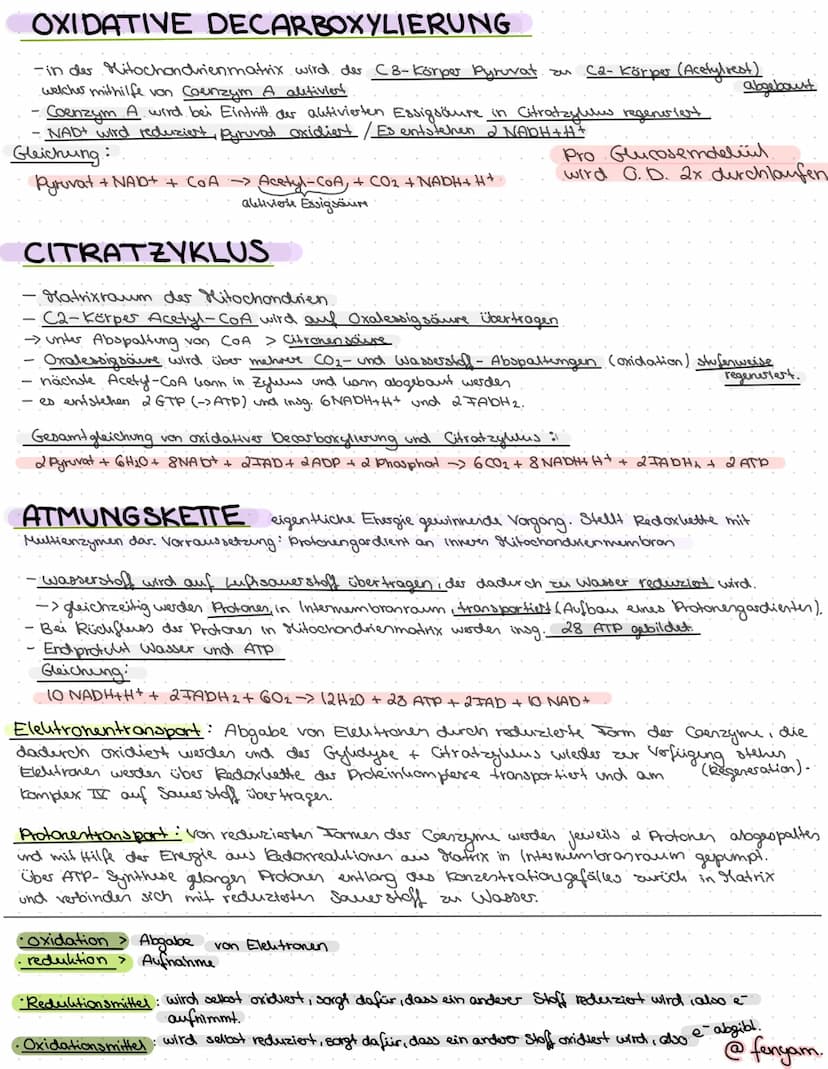 OXIDATIVE DECARBOXYLIERUNG
- in der Mitochondrienmatrix wird der C3-Körper Pyruvat zu C2-Körper (Acetylrest)
welcher mithilfe von Coenzym A aktiviert abgebaut
- Coenzym A wird bei Eintritt der aktivierten Essigsäure in Citratzyklus regeneriert
- NAD+ wird reduziert, Pyruvat oxidiert / Es entstehen 2 NADH+H+
Gleichung:
Pro Glucosemolekül
wird O.D. 2x durchlaufen
Pyruvat + NAD+ + CoA -> Acetyl-CoA, + CO2 + NADH+H+
aktivierte Essigsäure
CITRATZYKLUS
- Matrixraum der Mitochondrien
- C2-Körper Acetyl-CoA wird auf Oxalessigsäure übertragen
-> unter Abspaltung von CoA > Citronensäure
- Oxalessigsäure wird über mehrere CO2- und Wasserstoff-Abspaltungen (oxidation) stufenweise
regeneriert.
- nächste Acetyl-CoA kann in Zyklus und kann abgebaut werden
- es entstehen 2 GTP (->ATP) und insg. 6NADH+H+ und 2 FADH2.
Gesamtgleichung von oxidativer Decarboxylierung und Citratzyklus:
2 Pyruvat + 6H2O + 8NAD+ + 2FAD + 2ADP + 2 Phosphat -> 6CO2 + 8 NADH+H+ + 2FADH2 + 2 ATP
ATMUNGSKETTE eigentliche Energie gewinnende Vorgang. Stellt Redoxkette mit
Multienzymen dar. Vorraussetzung: Protonengardient an inneren Mitochondrienmembran
- Wasserstoff wird auf Luftsauerstoff übertragen, der dadurch zu Wasser reduziert wird.
-> gleichzeitig werden Protonen in Intermembranraum transportiert (Aufbau eines Protonengardienten).
- Bei Rückfluss der Protonen in Mitochondrienmatrix werden insg. 28 ATP gebildet
- Endprodukt Wasser und ATP
Gleichung:
10 NADH+H+ + 2FADH2 + 6O2 -> 12H2O + 28 ATP + 2FAD + 10 NAD+
Elektronentransport: Abgabe von Elektronen durch reduzierte Form der Coenzyme, die
dadurch oxidiert werden und der Gylkolyse + Citratzyklus wieder zur Verfügung stehen
(Regeneration).
Elektronen werden über Redoxkette der Proteinkomplexe transportiert und am
Komplex IV auf Sauerstoff übertragen.
Protonentransport: von reduzierten Formen der Coenzyme werden jeweils 2 Protonen abgespalten
und mit Hilfe der Energie aus Redoxreaktionen aus Matrix in Intermembranraum gepumpt.
Über ATP-Synthase gelangen Protonen entlang des Konzentrationsgefälles zurück in Matrix
und verbinden sich mit reduzierten Sauerstoff zu Wasser.
· oxidation > Abgabe von Elektronen
· reduktion > Aufnahme
· Reduktionsmittel: wird selbst oxidiert, sorgt dafür, dass ein anderer Stoff reduziert wird, also e-
aufnimmt.
· Oxidationsmittel: wird selbst reduziert, sorgt dafür, dass ein anderer Stoff oxidiert wird, also e- abgibt.
@fenyam.